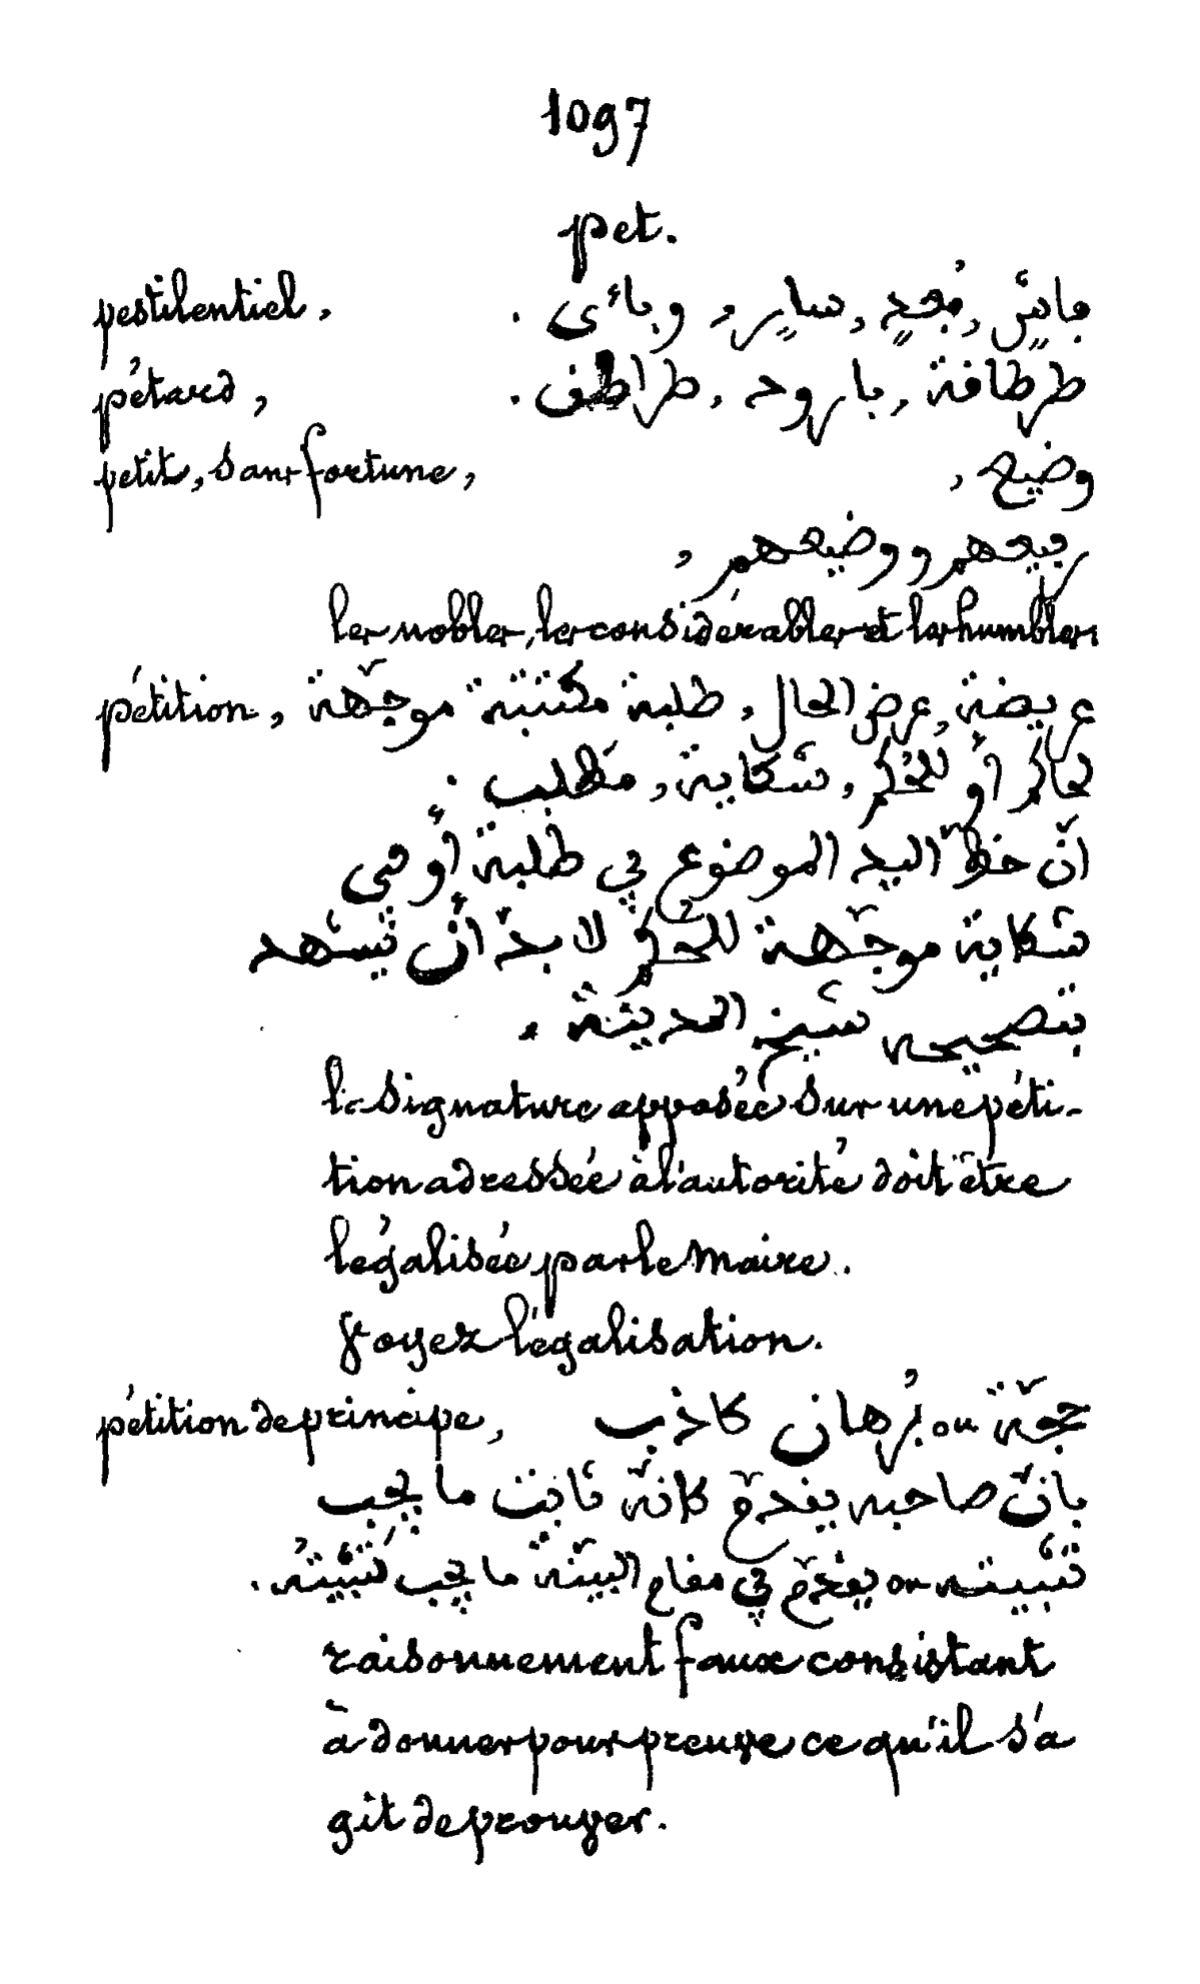 1097
pet.
pestilentiel, فايشٍ, مُعدٍ, سارٍ, وبائى.
pétard, طرطافة, بارود, طراطف.
petit, sans fortune, وضيع,
رفيعهم ووضيعهم,
les nobles, les considérables et les humbles.
pétition, عريضة, عرض الحال, طلبة مكتتبة موجّهة
لحاكم أو للحُكم, شكاية, مَطلب.
انّ خطّ اليد الموضوع في طلبة أو في
شكاية موجّهة للحكم لا بدّ أن يشهد
بتصحيحه شيخ المدينة.
la signature apposée sur une péti-
tion adressée à l'autorité doit être
légalisée par le Maire.
Voyez légalisation.
pétition de principe, حجّة ou بُرهان كاذب
بانّ صاحبه يقدّم كانّه ثابت ما يجب
تثبيته ou يقدّم في مقام البيّنة ما يجب تثبيتُه.
raisonnement faux consistant
à donner pour preuve ce qu'il s'a
git de prouver.